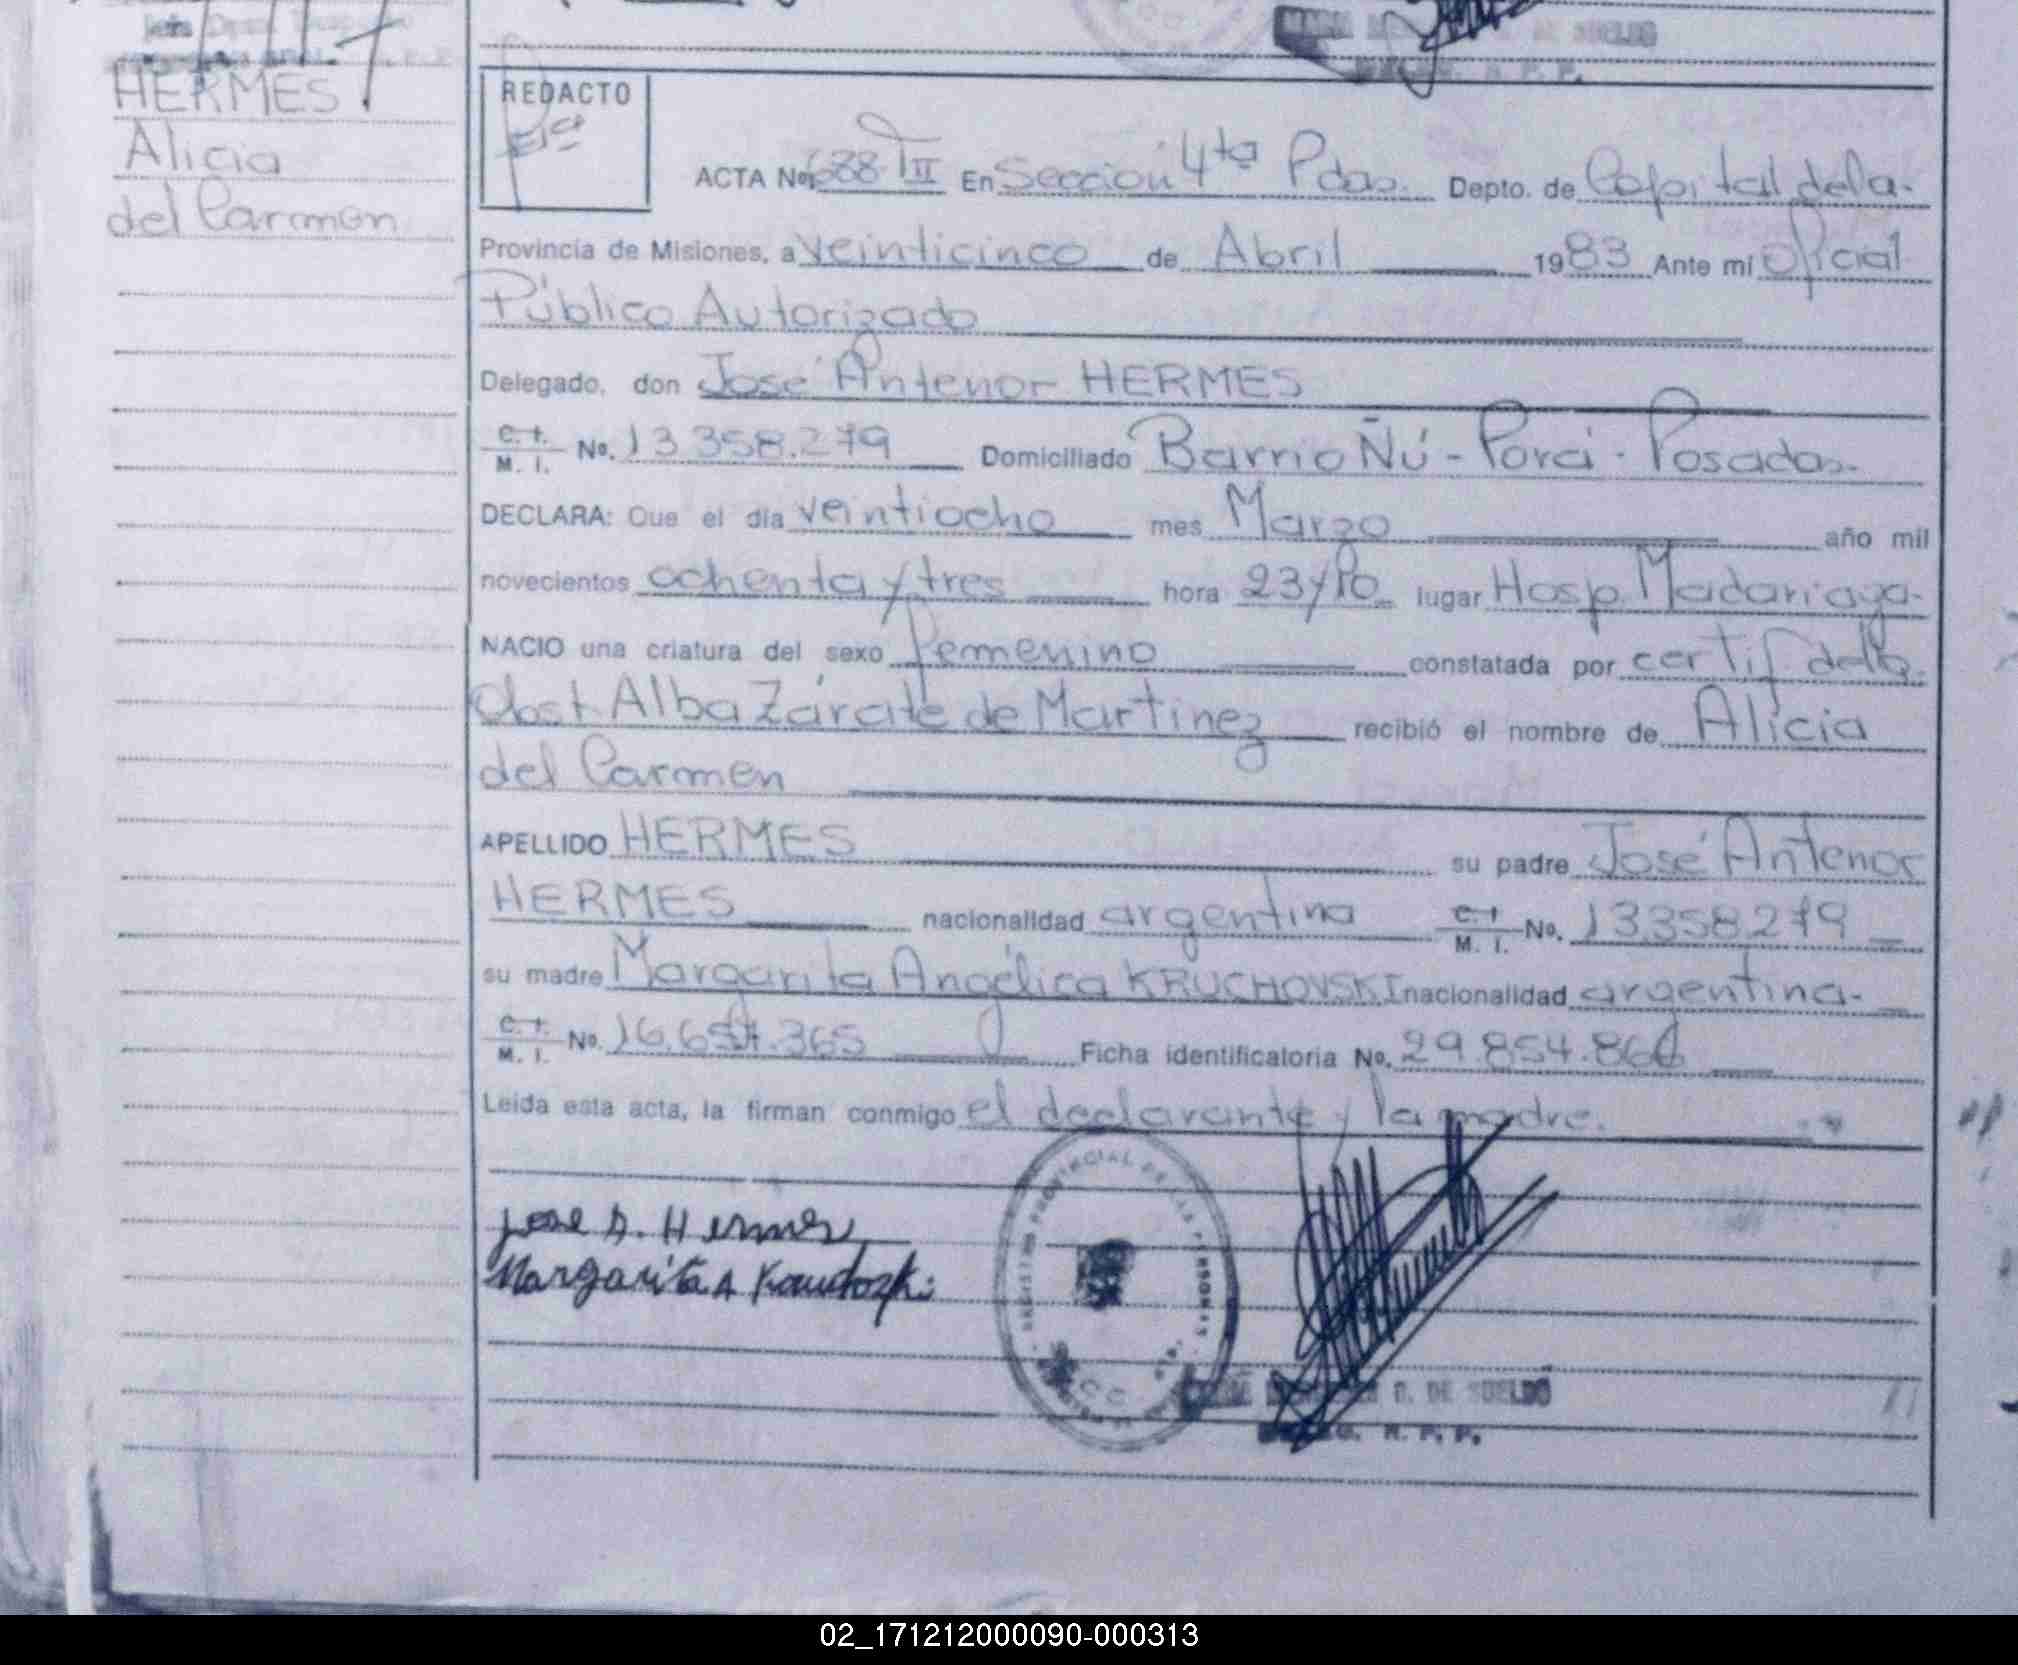 HERMES
Alicia
del Carmen
DE SUELDO
R. P. P.
REDACTO
ACTA No. 688 TII En Sección 4ta Pdas. Depto. de Capital de la
Provincia de Misiones, a veinticinco de Abril 1983 Ante mi Oficial
Público Autorizado
Delegado, don José Antenor HERMES
C. I. M. I. No. 13.358.279 Domiciliado Barrio Ñú-Porá-Posadas.
DECLARA: Que el día veintiocho mes Marzo año mil
novecientos ochenta y tres hora 23 y 10 lugar Hosp. Madariaga
NACIO una criatura del sexo femenino constatada por certif. de la
Obst. Alba Zárate de Martinez recibió el nombre de Alicia
del Carmen
APELLIDO HERMES su padre José Antenor
HERMES nacionalidad argentina C. I. M. I. No. 13.358.279
su madre Margarita Angélica KRUCHOVSKI nacionalidad argentina.
C. I. M. I. No. Ficha identificatoria No. 29.854.
Leída esta acta, la firman conmigo el declarante y la madre.
Jose A. Hermes
Margarita A
REGISTRO PROVINCIAL DE LAS PERSONAS
DE SUELDO
R. P. P.
02_171212000090-000313